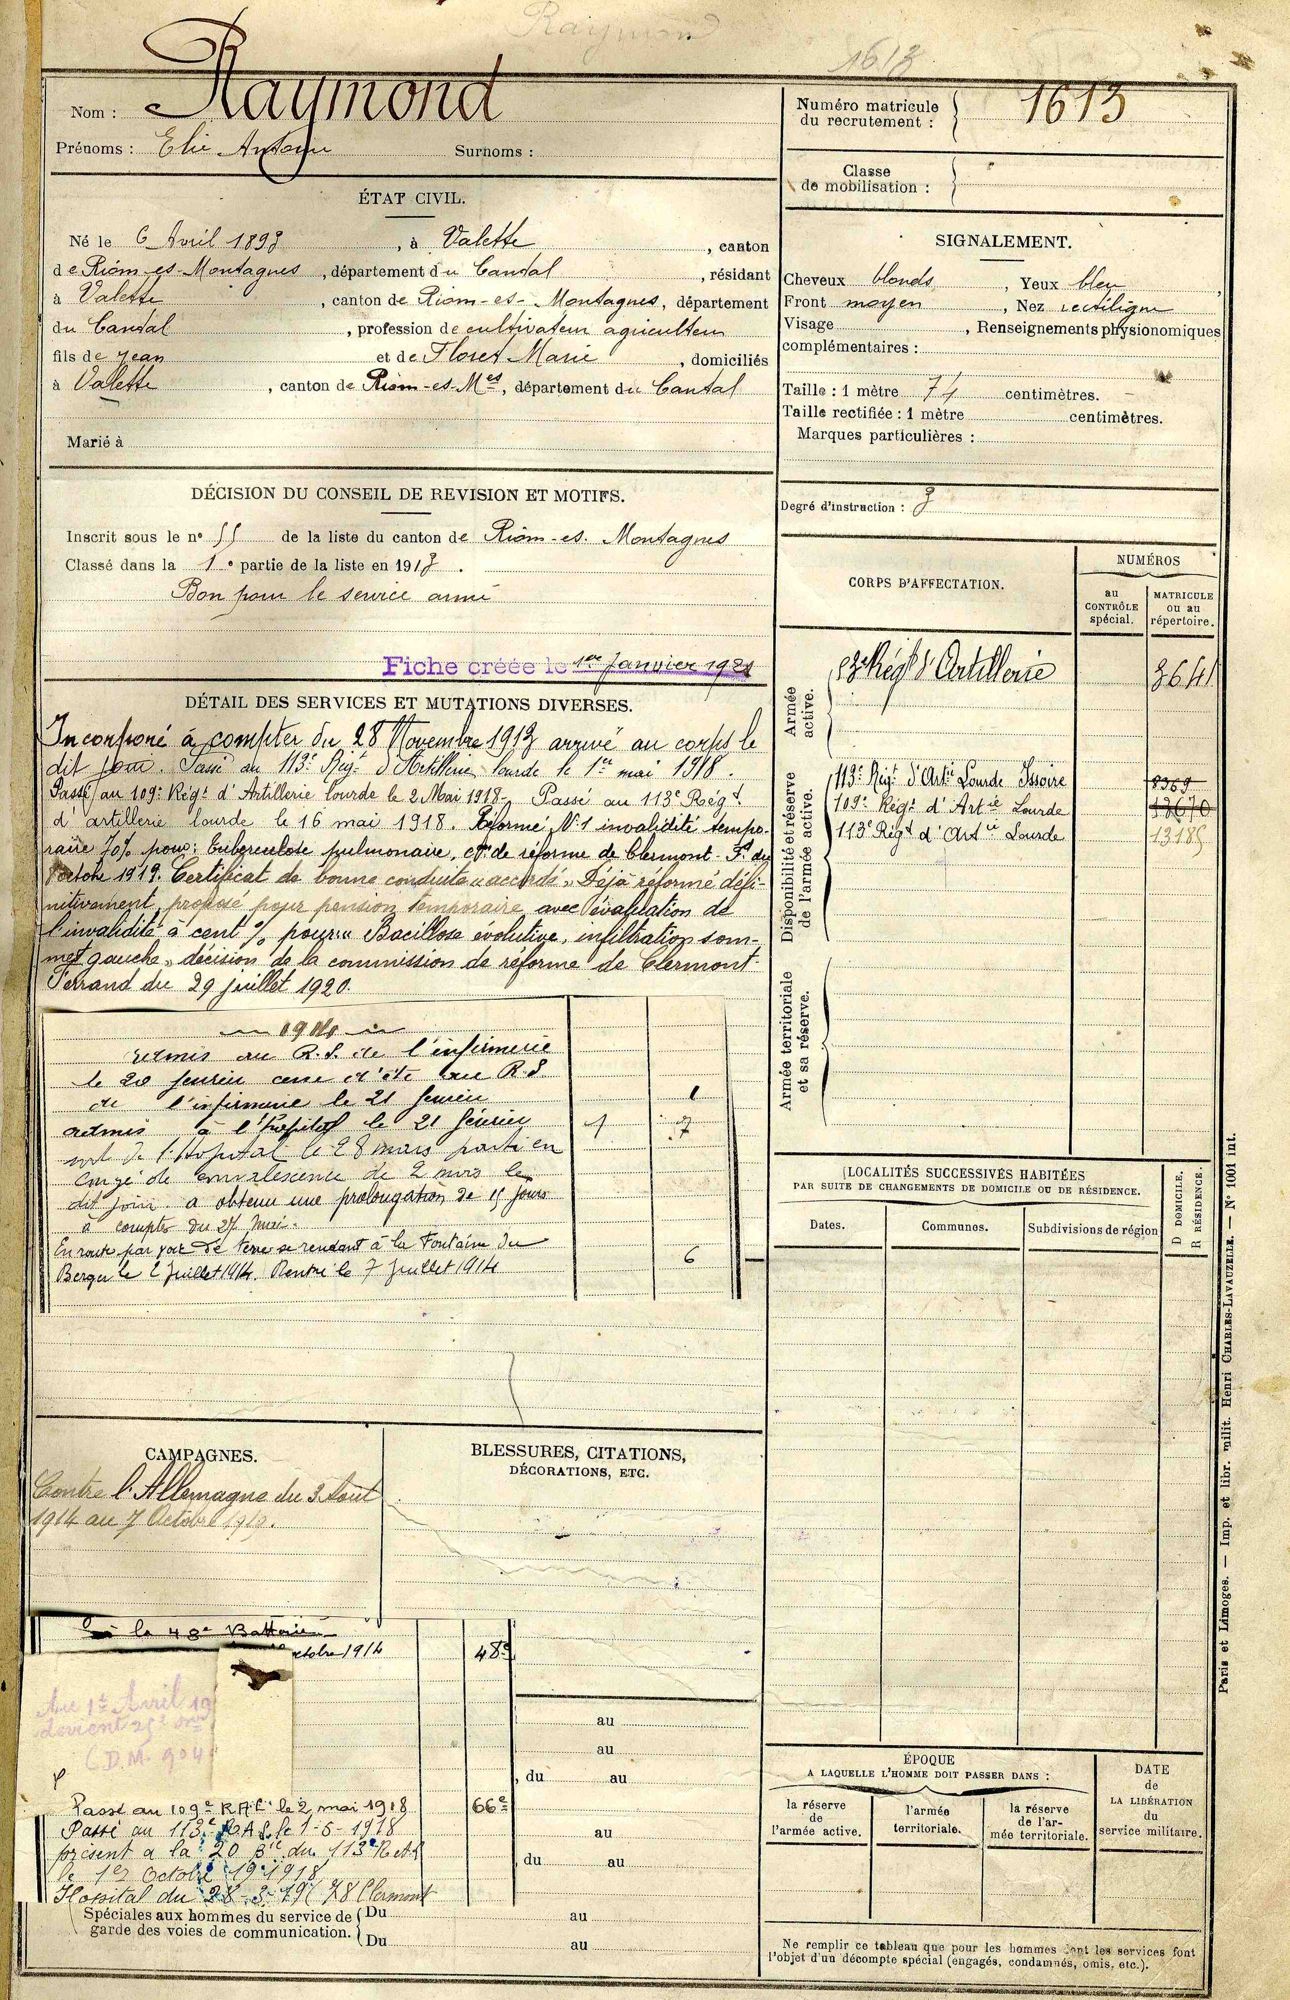 Raymond
1613
Nom : Raymond
Prénoms : Elie Antoine Surnoms :
Numéro matricule du recrutement : 1613
Classe de mobilisation :
ÉTAT CIVIL.
Né le 6 Avril 1893, à Valette, canton
de Riom-es-Montagnes, département du Cantal, résidant
à Valette, canton de Riom-es-Montagnes, département
du Cantal, profession de cultivateur agriculteur
fils de Jean et de Floret Marie, domiciliés
à Valette, canton de Riom-es-Mes, département du Cantal
Marié à
SIGNALEMENT.
Cheveux blonds, Yeux bleu,
Front moyen, Nez rectiligne
Visage , Renseignements physionomiques
complémentaires :
Taille : 1 mètre 74 centimètres.
Taille rectifiée : 1 mètre centimètres.
Marques particulières :
DÉCISION DU CONSEIL DE REVISION ET MOTIFS.
Inscrit sous le n° 55 de la liste du canton de Riom-es-Montagnes
Classé dans la 1e partie de la liste en 1913.
Bon pour le service armé
Fiche créée le 1er Janvier 1921
Degré d'instruction : 3
CORPS D'AFFECTATION.
NUMÉROS
au CONTRÔLE spécial.
MATRICULE ou au répertoire.
Armée active.
53e Régt d'Artillerie 3641
Disponibilité et réserve de l'armée active.
113e Régt d'Artie Lourde Issoire 8369
109e Régt d'Artie Lourde 12670
113e Régt d'Artie Lourde 13185
Armée territoriale et sa réserve.
DÉTAIL DES SERVICES ET MUTATIONS DIVERSES.
Incorporé à compter du 28 Novembre 1913 arrivé au corps le
dit jour. Passé au 113e Régt d'Artillerie lourde le 1er mai 1918.
Passé au 109e Régt d'Artillerie lourde le 2 Mai 1918. Passé au 113e Régt
d'artillerie lourde le 16 mai 1918. Réformé N°1 invalidité tempo-
raire 70% pour : Tuberculose pulmonaire, con de réforme de Clermont-Fd du
7 octobre 1919. Certificat de bonne conduite "accordé". Déjà réformé défi-
nitivement, proposé pour pension temporaire avec évaluation de
l'invalidité à cent % pour "Bacillose évolutive, infiltration som-
met gauche", décision de la commission de réforme de Clermont-
Ferrand du 29 juillet 1920.
1914
admis au R.S. de l'infirmerie
le 20 février cesse d'être au R.S.
de l'infirmerie le 21 février 1
admis à l'hôpital le 21 février 1 7
sorti de l'Hopital le 28 mars parti en
congé de convalescence de 2 mois le
dit jour. a obtenu une prolongation de 15 jours
à compter du 27 Mai.
En route par voie de terre se rendant à la Fontaine du
Berger le 2 Juillet 1914. Rentré le 7 Juillet 1914 6
LOCALITÉS SUCCESSIVES HABITÉES
PAR SUITE DE CHANGEMENTS DE DOMICILE OU DE RÉSIDENCE.
Dates. Communes. Subdivisions de région
D DOMICILE. R RÉSIDENCE.
CAMPAGNES.
Contre l'Allemagne du 3 Août
1914 au 7 Octobre 1919.
BLESSURES, CITATIONS,
DÉCORATIONS, ETC.
à la 48e Batterie
octobre 1914 48e
Au 1er Avril 19
devient 25e
(D.M. 904
au
au
du au
Passé au 109e RAL le 2 mai 1918 66e
Passé au 113e RAL le 1-6-1918
présent à la 20 Bie du 113e RAL
le 1er Octobre 1918
Hopital du 28-3-19 78 Clermont
au
du au
Spéciales aux hommes du service de garde des voies de communication.
Du au
Du au
ÉPOQUE
A LAQUELLE L'HOMME DOIT PASSER DANS :
la réserve de l'armée active.
l'armée territoriale.
la réserve de l'armée territoriale.
DATE de LA LIBÉRATION du service militaire.
Ne remplir ce tableau que pour les hommes dont les services font
l'objet d'un décompte spécial (engagés, condamnés, omis, etc.).
Paris et Limoges. — Imp. et libr. milit. Henri CHARLES-LAVAUZELLE. — N° 1001 int.